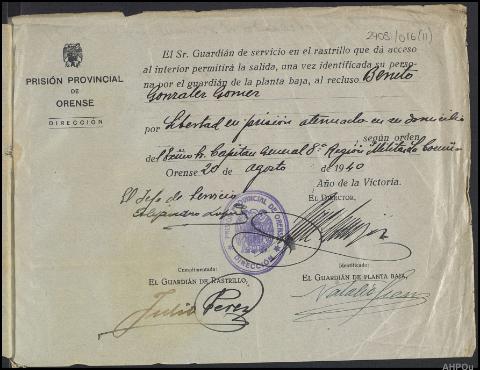 2408/016(11)
PRISIÓN PROVINCIAL
DE
ORENSE
DIRECCIÓN
El Sr. Guardián de servicio en el rastrillo que dá acceso
al interior permitirá la salida, una vez identificada su perso-
na por el guardián de la planta baja, al recluso Benito
Gonzalez Gomez
por Libertad en prision atenuada en su domicilio
, según orden
del Exmo Sr. Capitan General 8ª Region Militar La Coruña
Orense 20 de agosto de 1940
Año de la Victoria.
El Jefe de Servicio
EL DIRECTOR,
Alejandro
PRISION PROVINCIAL DE ORENSE
DIRECCION
Cumplimentado:
EL GUARDIÁN DE RASTRILLO,
Identificado:
EL GUARDIÁN DE PLANTA BAJA,
Julio Perez
Natalio
AHPOu